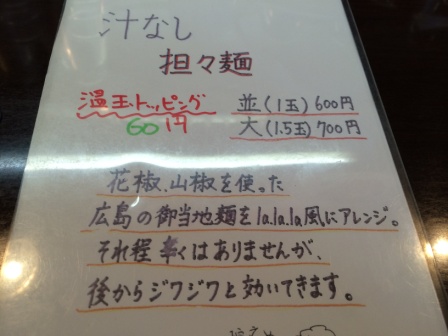 汁なし
担々麺
温玉トッピング 並(1玉)600円
60円 大(1.5玉)700円
花椒、山椒を使った
広島の御当地麺をla.la.la風にアレンジ。
それ程辛くはありませんが、
後からジワジワと効いてきます。